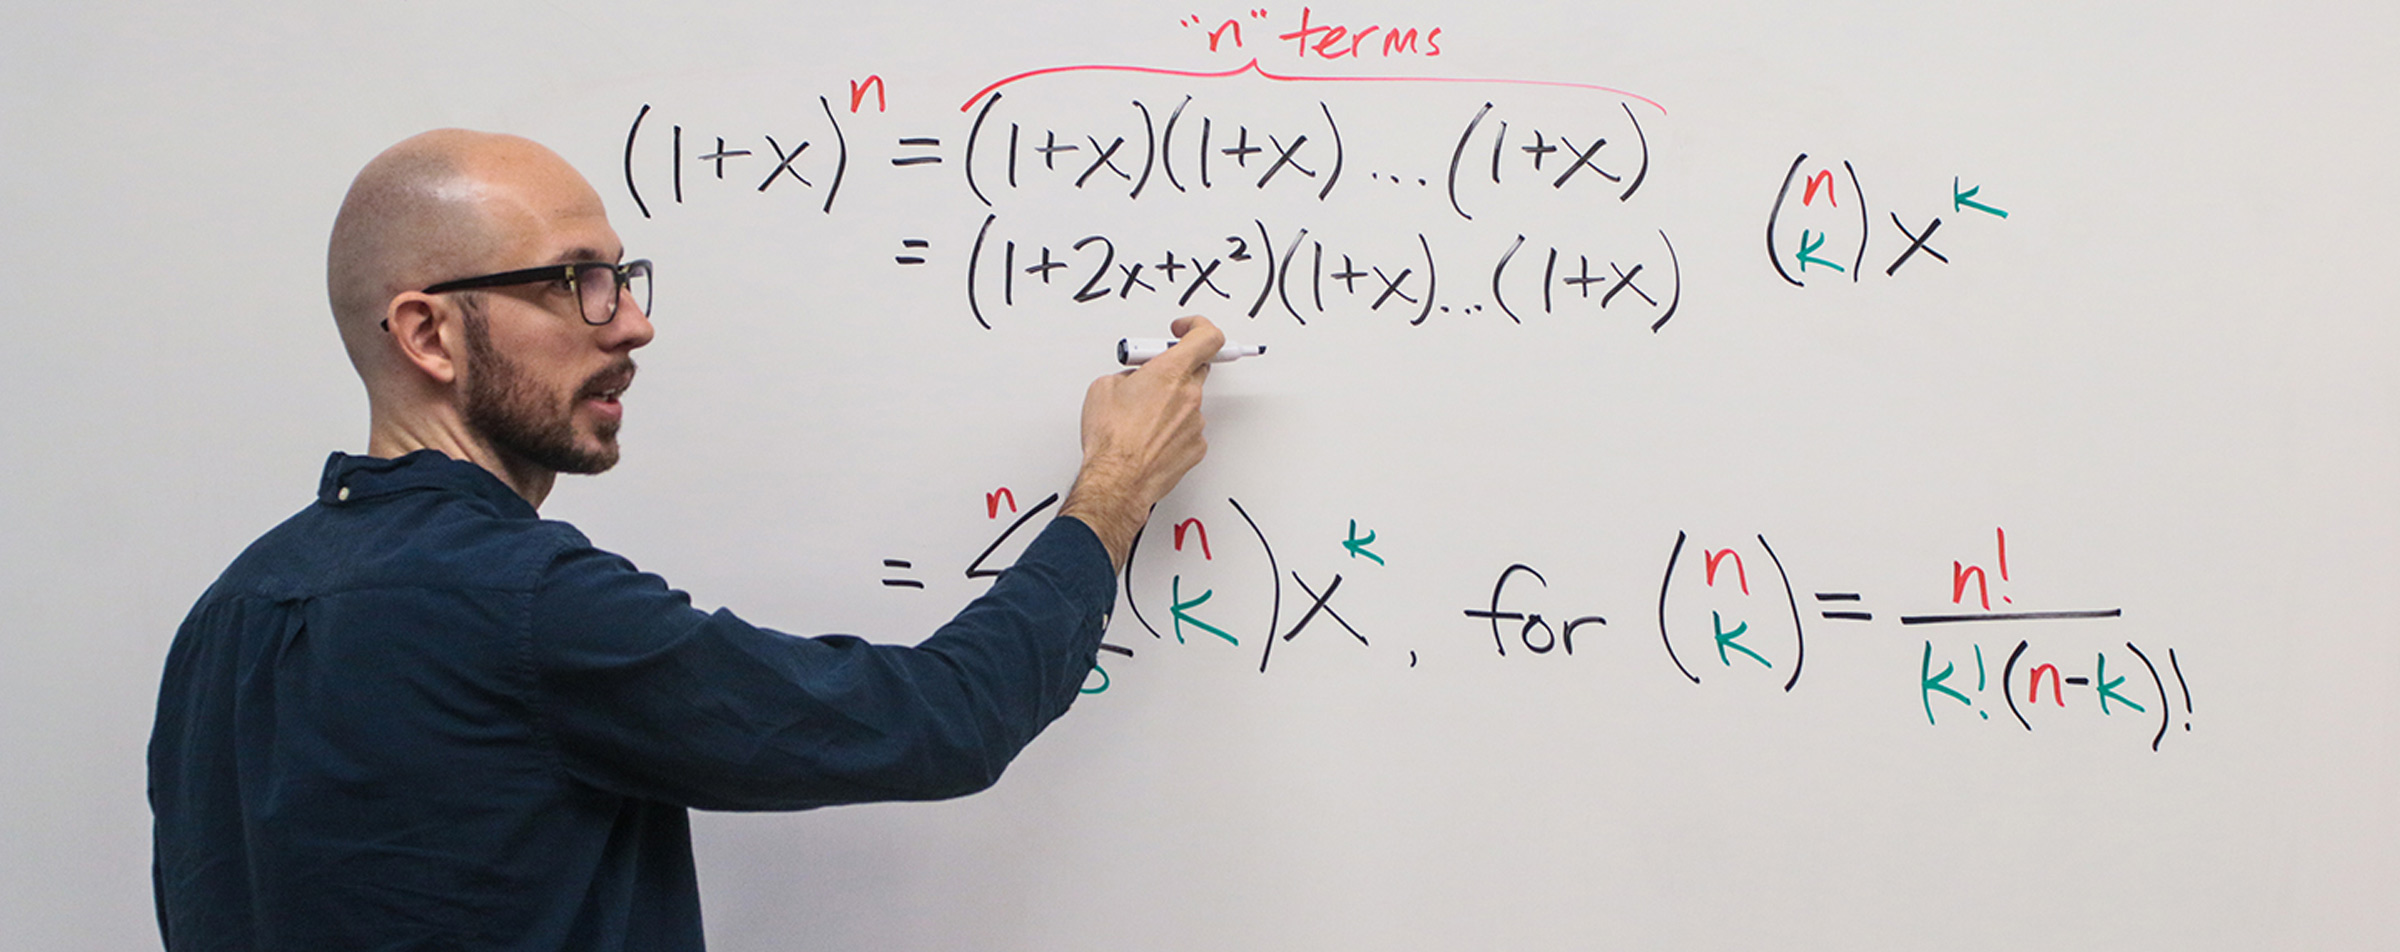 "n" terms
(1+x)ⁿ = (1+x)(1+x)...(1+x)
= (1+2x+x²)(1+x)...(1+x)
(n k) xᵏ
n
= Σ (n k) xᵏ, for (n k) = n! / k!(n-k)!